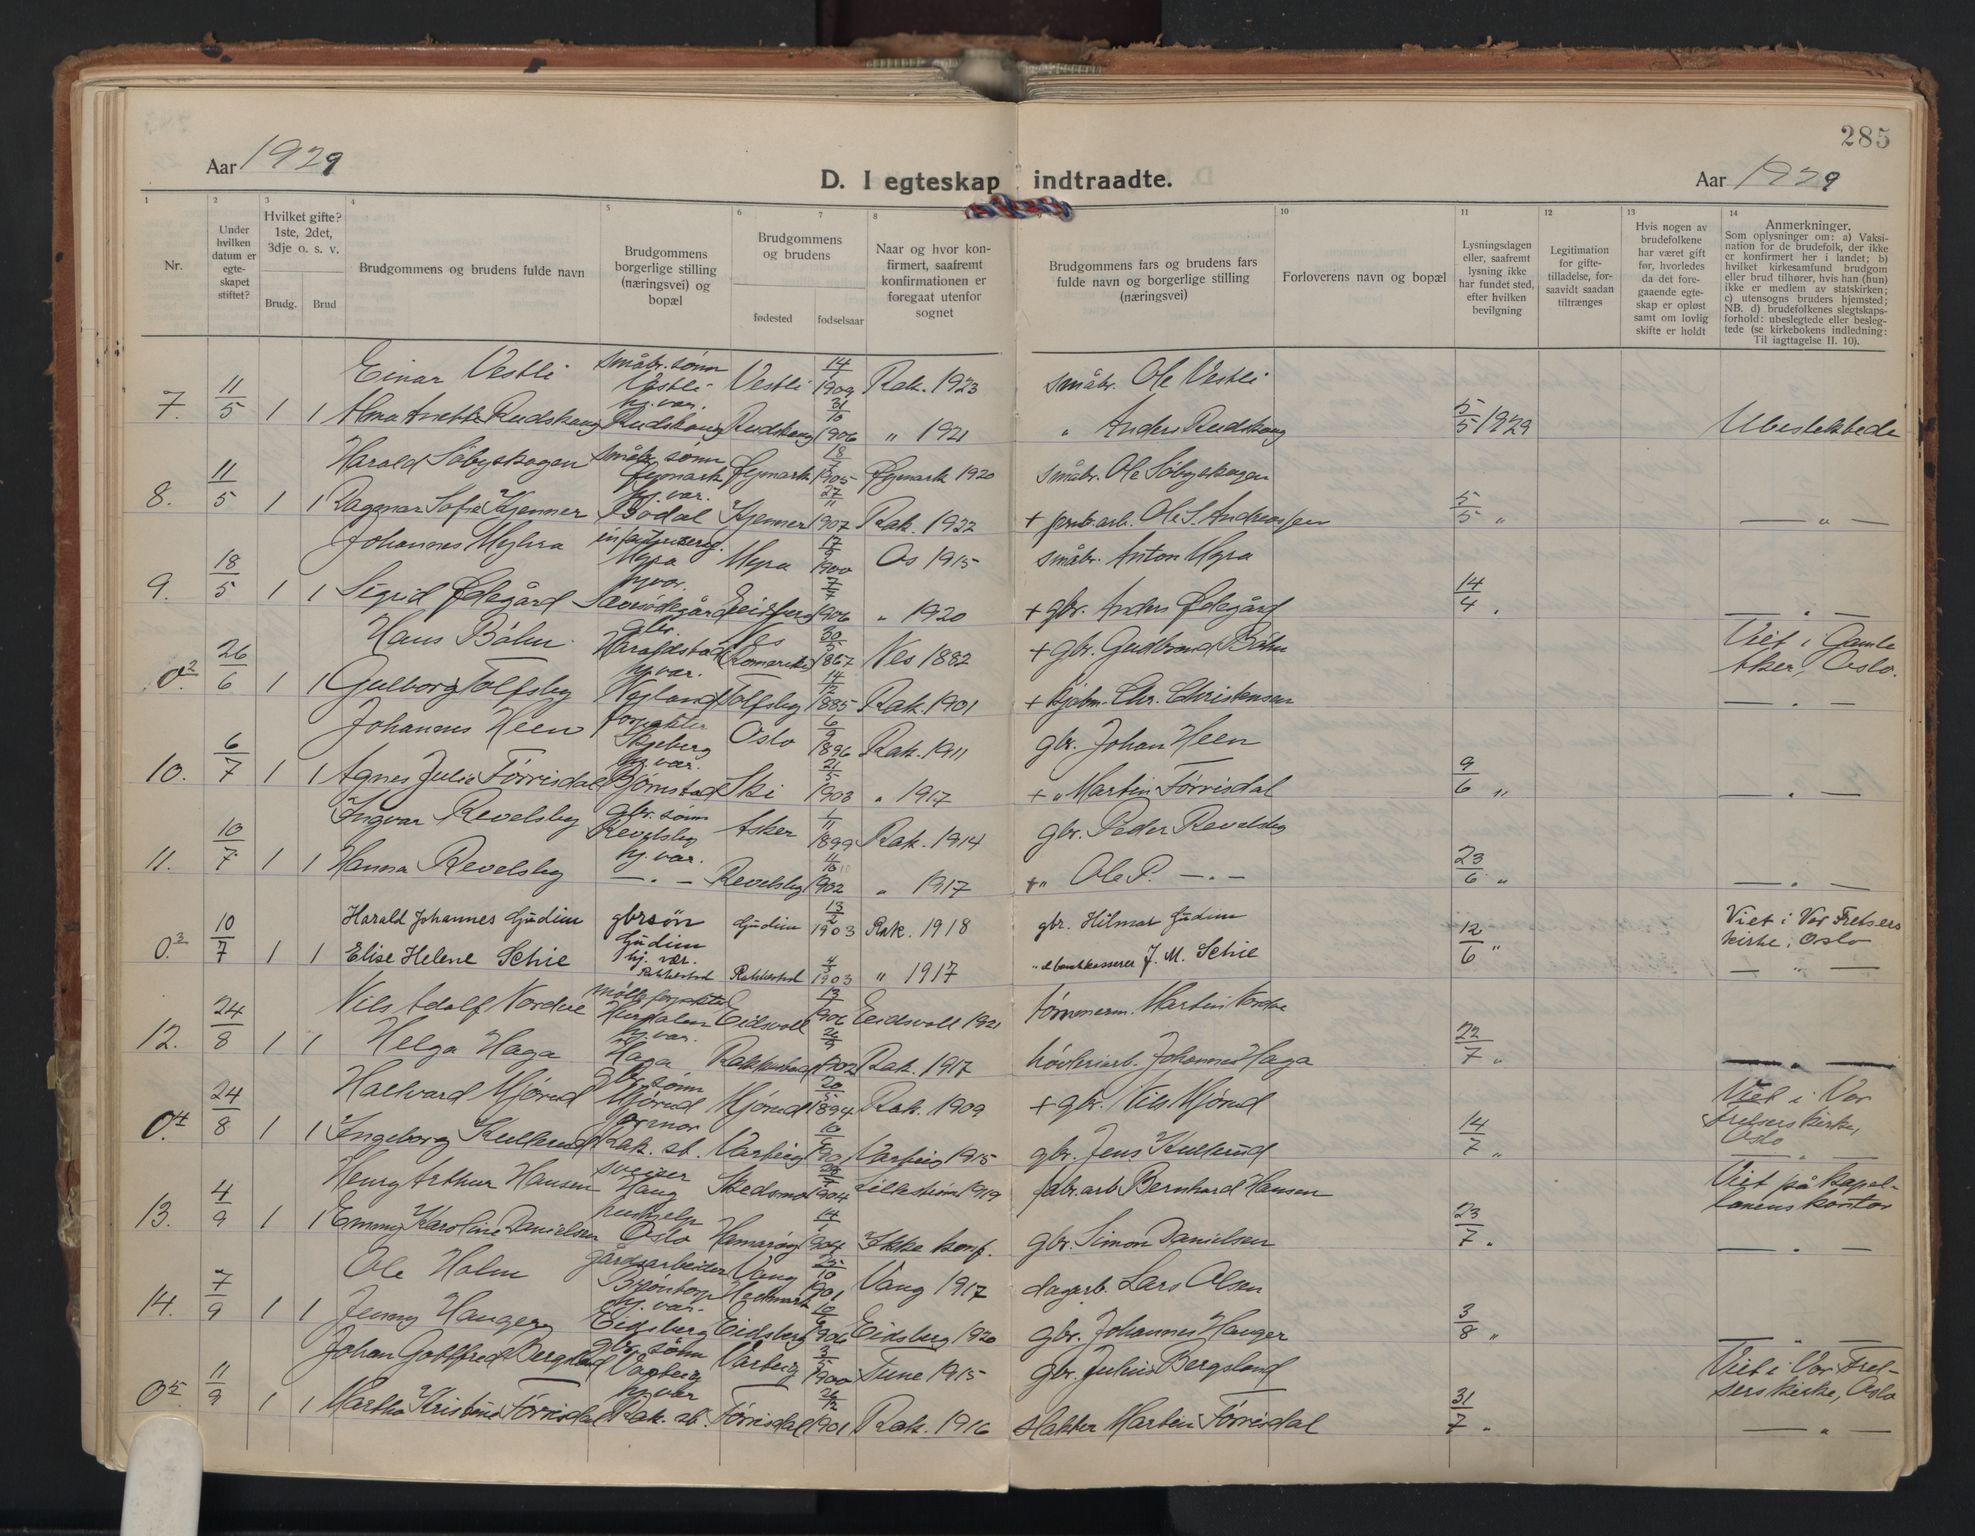 285
Aar 1929
D. I egteskap indtraadte.
Aar 1929
1 2 3 4 5 6 7 8 10 11 12 13 14
Nr.
Under hvilken datum er egteskapet stiftet?
Hvilket gifte? 1ste, 2det, 3dje o. s. v.
Brudg. Brud
Brudgommens og brudens fulde navn
Brudgommens borgerlige stilling (næringsvei) og bopæl
Brudgommens og brudens
fødested fødselsaar
Naar og hvor konfirmert, saafremt konfirmationen er foregaat utenfor sognet
Brudgommens fars og brudens fars fulde navn og borgerlige stilling (næringsvei)
Forloverens navn og bopæl
Lysningsdagen eller, saafremt lysning ikke har fundet sted, efter hvilken bevilgning
Legitimation for giftetilladelse, forsaavidt saadan tiltrænges
Hvis nogen av brudefolkene har været gift før, hvorledes da det foregaaende egteskap er opløst samt om lovlig skifte er holdt
Anmerkninger.
Som oplysninger om: a) Vaksination for de brudefolk, der ikke er konfirmert her i landet; b) hvilket kirkesamfund brudgom eller brud tilhører, hvis han (hun) ikke er medlem av statskirken; c) utensogns bruders hjemsted; NB. d) brudefolkenes slegtskapsforhold: ubeslegtede eller beslegtede (se kirkebokens indledning: Til iagttagelse II. 10).
Einar Vestli småbr. sønn Vestli Vestli 14/1 1909 Rak. 1923 småbr. Ole Vestli
7. 11/5 1 1 Alma Anette Rudskaug hj. vær. Rudskaug Rudskaug 31/10 1906 " 1921 " Anders Rudskaug 5/5 1929 Ubeslektede
Harald Söbyskogen småbr. sønn Øymark Øymark 1905 Øymark 1920 småbr. Ole Söbyskogen
8. 11/5 1 1 Dagmar Sofie Kjenner hj. vær. Bodal Kjenner 27/11 1907 Rak. 1922 + Ole S. Andreassen 5/5 " — " —
Johannes Myhra Myra Myra 1900 Os 1915 småbr. Anton Myra
9. 18/5 1 1 Sigrid Ødegård hj. vær. Eidsberg 7/7 1906 " 1920 + gbr. Anders Ødegård 14/4 " — " —
Hans Böhn gbr. Haraldstad Nes Romerike 30/5 1867 Nes 1882 + gbr. Gudbrand Böhn Viet i Gamle Aker, Oslo.
0.2 26/6 1 1 Gulborg Tolfsby hj. vær. Tolfsby 14/12 1885 Rak. 1901 + Chr. Christensen — " —
Johannes Heen forpakter Skjeberg Oslo 6/9 1896 Rak. 1911 gbr. Johan Heen
10. 6/7 1 1 Agnes Julie Førrisdal hj. vær. Bjørnstad Ski 21/5 1903 " 1917 + " Martin Førrisdal 9/6 " — " —
Ingvar Revelsby gbr. sønn Revelsby Asker 1/11 1899 Rak. 1914 gbr. Peder Revelsby
11. 10/7 1 1 Hanna Revelsby hj. vær. — " — Revelsby 4/10 1902 " 1917 + " Ole P. — " — 23/6 " — " —
Harald Johannes Gudim gbrsøn Gudim Gudim 13/2 1903 Rak. 1918 gbr. Hilmar Gudim Viet i Vor Frelsers kirke, Oslo
0.3 10/7 1 1 Elise Helene Schie hj. vær. Rakkestad Rakkestad 1903 " 1917 J. M. Schie 12/6 " — " —
Nils Adolf Nordlie mølleforpakter Eidsvoll 1906 Eidsvoll 1921 tømmerm. Martin Nordlie
12. 24/8 1 1 Helga Haga hj. vær. Haga Rakkestad 1902 Rak. 1917 høvleriarb. Johannes Haga 22/7 " — " —
Hallvard Mjørud gbr. sønn Mjørud Mjørud 20/5 1894 Rak. 1909 + gbr. Nils Mjørud Viet i Vor frelsers kirke, Oslo
0.4 24/8 1 1 Ingeborg Kullerud Rak. st. Varteig 1901 Varteig 1915 gbr. Jens Kullerud 14/7 " — " —
Henry Arthur Hansen sveiser Haug Skedsmo 1904 Lillestrøm 1919 fabr. arb. Bernhard Hansen Viet på kapellanens kontor
13. 4/9 1 1 Emmy Karoline Danielsen Oslo Hamarøy 14/1 1904 Ikke konf. gbr. Simon Danielsen 23/7 " — " —
Ole Holm gårdsarbeider Vang Hedmark 25/10 1901 Vang 1917 dagarb. Lars Olsen
14. 7/9 1 1 Jenny Hanger hj. vær. Eidsberg Eidsberg 1906 Eidsberg 1920 gbr. Johannes Hanger 3/8 " — " —
Johan Gottfred Bergsland gbr. sønn Varteig Varteig 3/5 1900 Tune 1915 gbr. Julius Bergsland Viet i Vor Frelsers kirke, Oslo
0.5 11/9 1 1 Martha Kristine Førrisdal hj. vær Rak. st. Førrisdal 26/12 1901 Rak. 1916 slakter Martin Førrisdal 31/7 " — " —